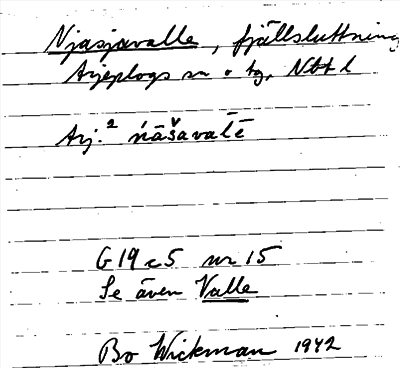 Njasjavalle, fjällsluttning
Arjeplogs sn o tg, Nbtt l
Arj.² ńāšavatē
G 19 c 5 nr 15
Se även Valle
Bo Wickman 1942